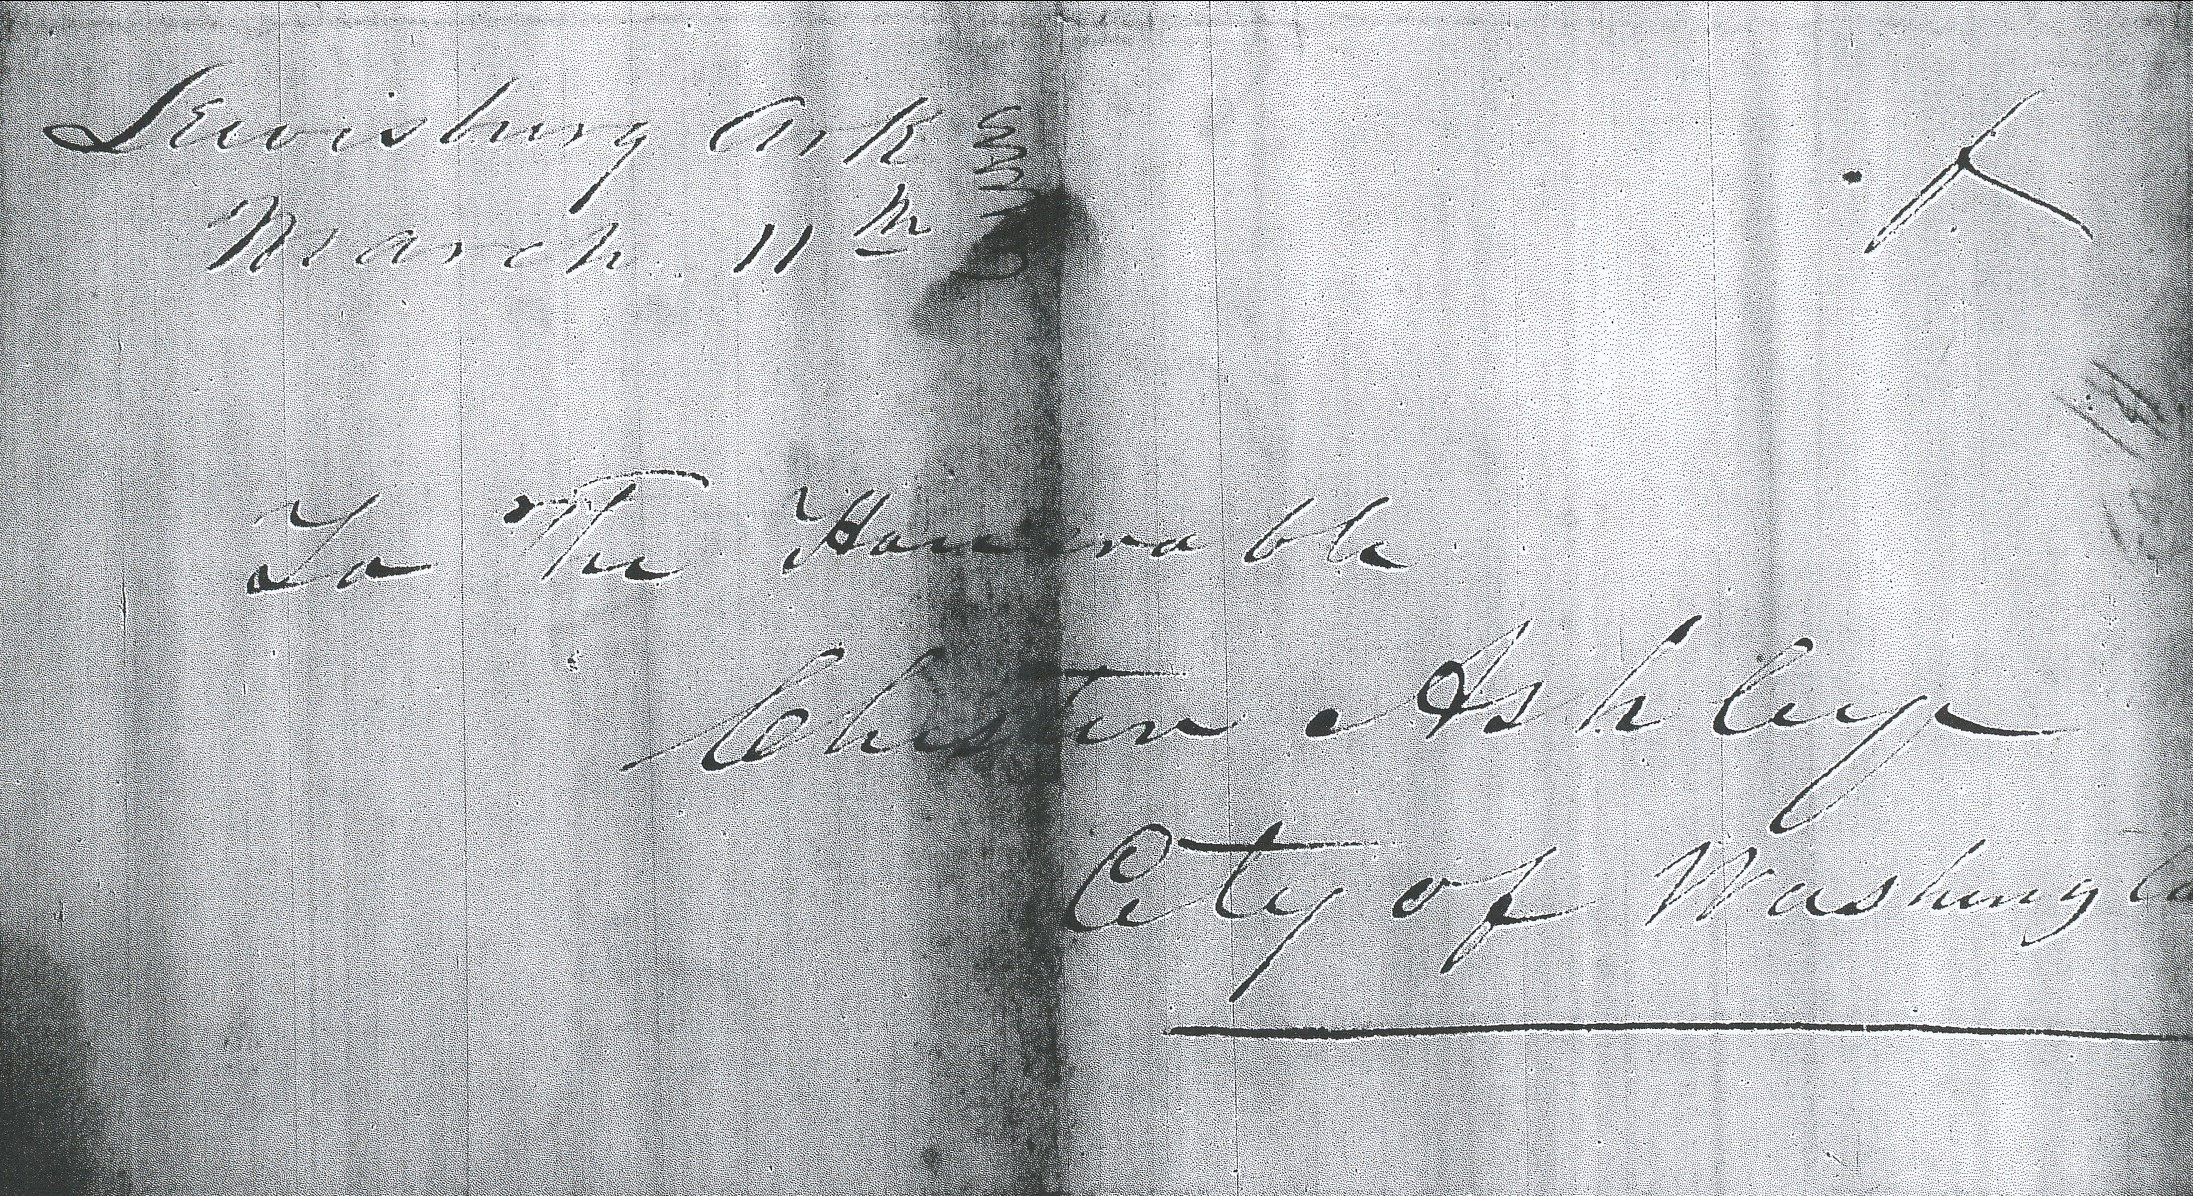 Lewisburg Ark
March 11th
To The Honorable
Chester Ashley
City of Washington